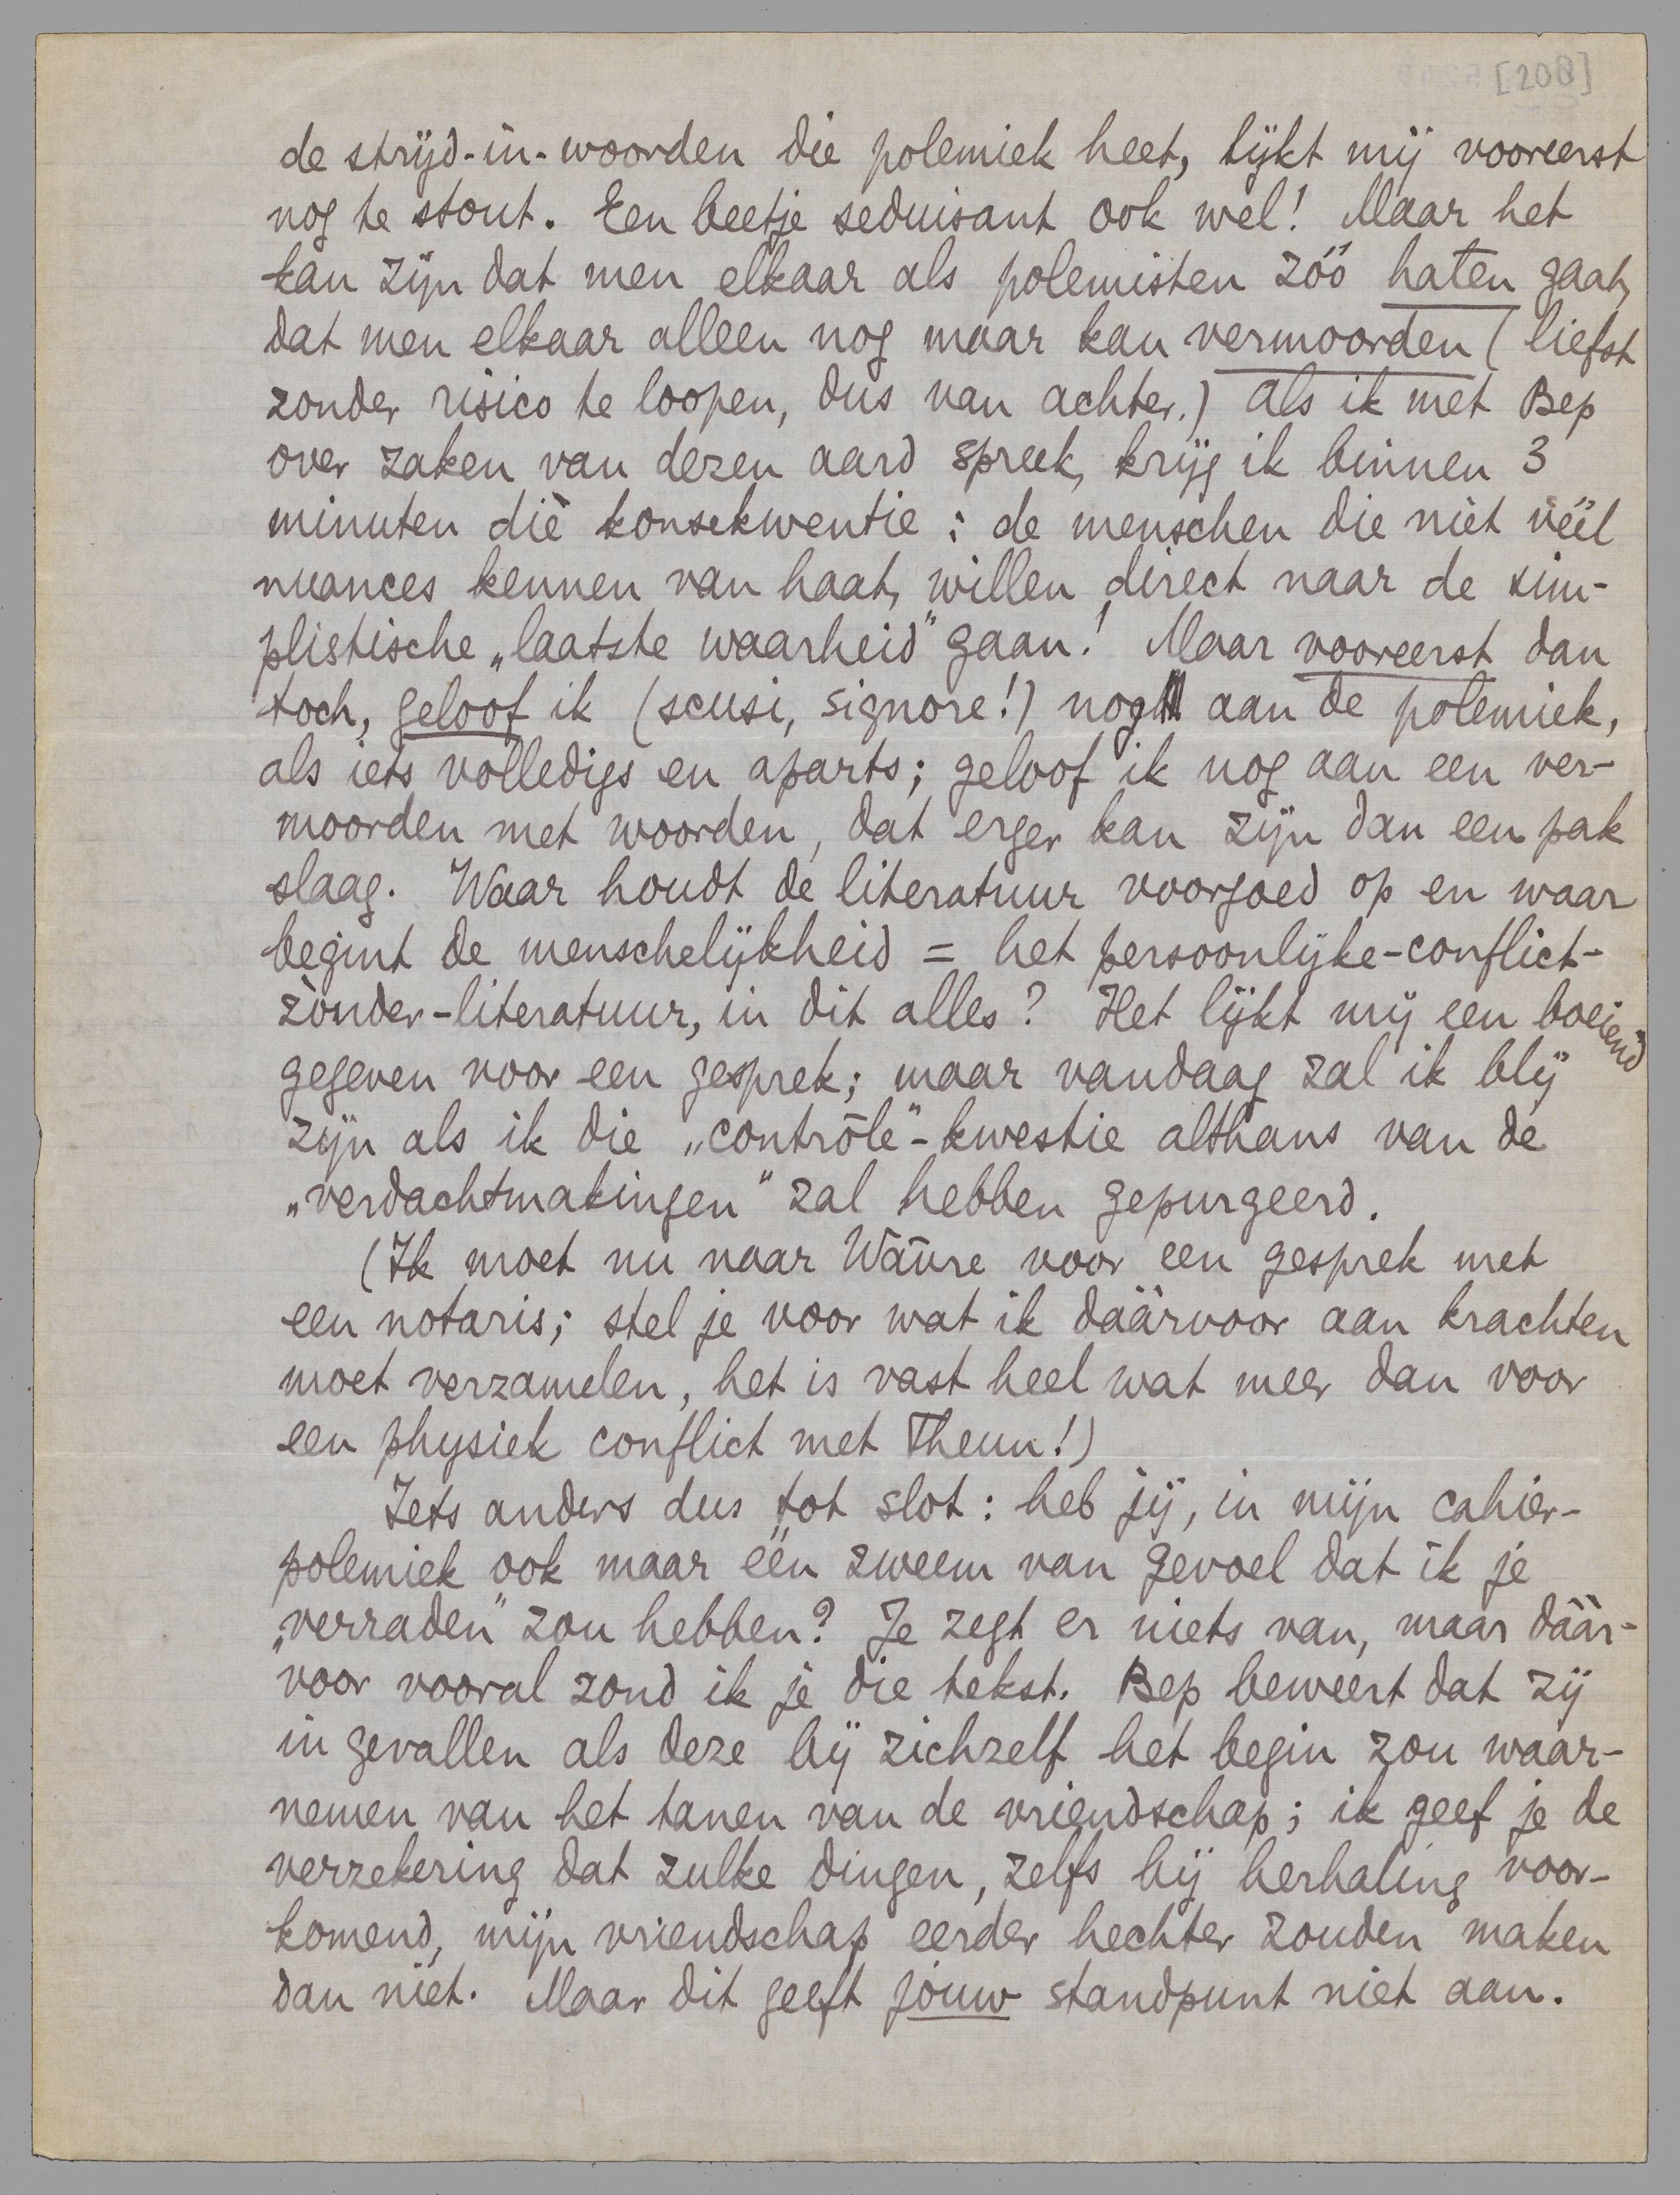 [208]
de strijd-in-woorden die polemiek heet, lijkt mij vooreerst
nog te stout. Een beetje seduisant ook wel! Maar het
kan zijn dat men elkaar als polemisten zóó haten gaat,
dat men elkaar alleen nog maar kan vermoorden (liefst
zonder risico te loopen, dus van achter.) Als ik met Bep
over zaken van dezen aard spreek, krijg ik binnen 3
minuten diè konsekwentie: de menschen die niet véél
nuances kennen van haat, willen direct naar de sim-
plistische „laatste waarheid" gaan! Maar vooreerst dan
toch, geloof ik (scusi, signore!) nog aan de polemiek,
als iets volledigs en aparts; geloof ik nog aan een ver-
moorden met woorden, dat erger kan zijn dan een pak
slaag. Waar houdt de literatuur voorgoed op en waar
begint de menschelijkheid = het persoonlijke-conflict-
zònder-literatuur, in dit alles? Het lijkt mij een boeiend
gegeven voor een gesprek; maar vandaag zal ik blij
zijn als ik die „contrôle"-kwestie althans van de
„verdachtmakingen" zal hebben gepurgeerd.
(Ik moet nu naar Wavre voor een gesprek met
een notaris; stel je voor wat ik dáárvoor aan krachten
moet verzamelen, het is vast heel wat meer dan voor
een physiek conflict met Theun!)
Iets anders dus tot slot: heb jij, in mijn cahier-
polemiek ook maar één zweem van gevoel dat ik je
„verraden" zou hebben? Je zegt er niets van, maar dáár-
voor vooral zond ik je die tekst. Bep beweert dat zij
in gevallen als deze bij zichzelf het begin zou waar-
nemen van het tanen van de vriendschap; ik geef je de
verzekering dat zulke dingen, zelfs bij herhaling voor-
komend, mijn vriendschap eerder hechter zouden maken
dan niet. Maar dit geeft jouw standpunt niet aan.